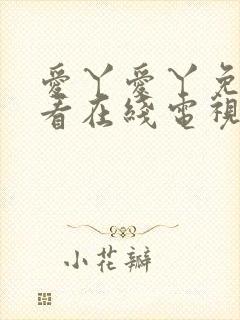 愛丫愛丫免
看在綫電視
小花瓣